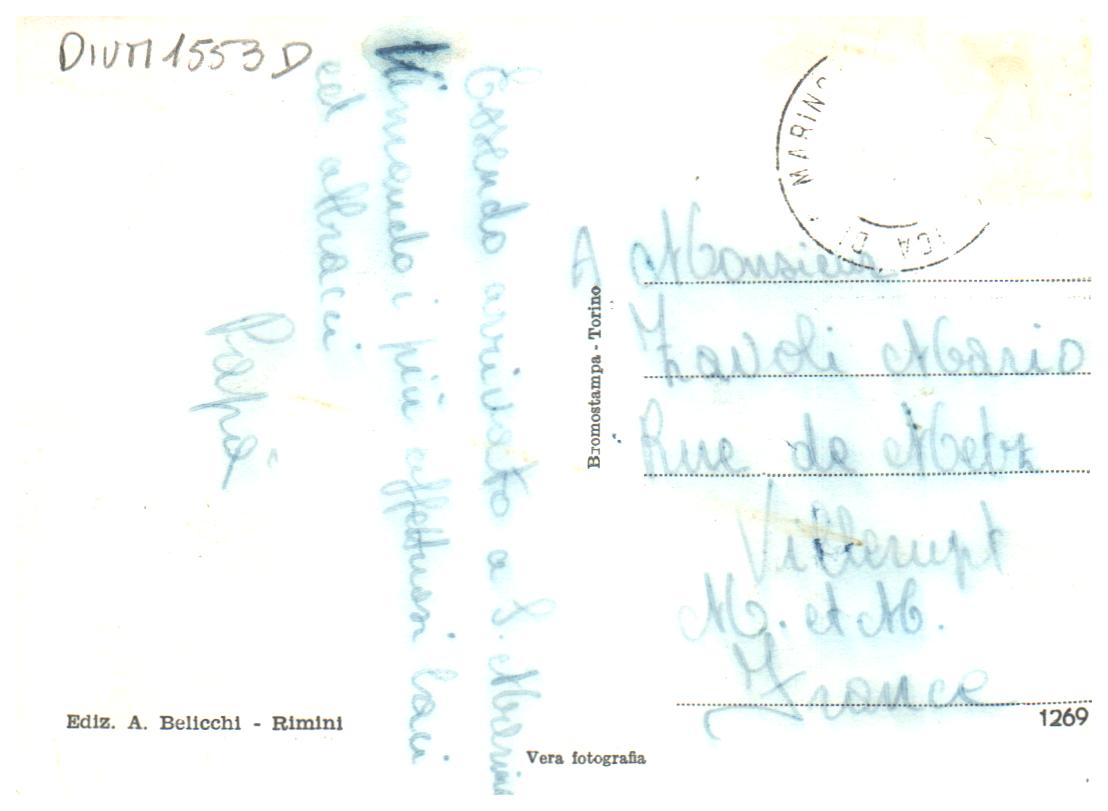 DIVM1553D
Essendo arrivato a S. Marin
V'mando i più affettuosi baci
ed abbracci
Papà
A Monsieur
Zavoli Mario
Rue de Metz
Villerupt
M. et M.
France
Bromostampa - Torino
Ediz. A. Belicchi - Rimini
Vera fotografia
1269
MARINO
ICA DI